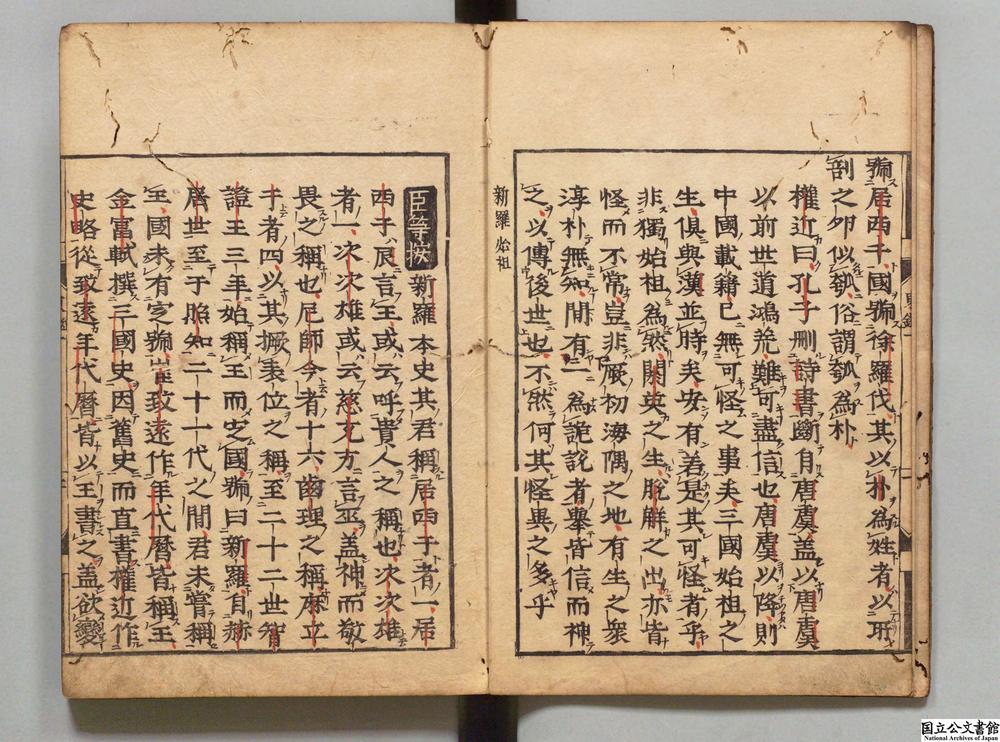 號居西干國號徐羅伐其以朴爲姓者以所
剖之卵似瓠俗謂瓠爲朴
權近曰孔子刪詩書斷自唐虞盖以唐虞
以前世道鴻荒難可盡信也唐虞以降則
中國載籍已無可怪之事矣三國始祖之
生俱與漢並時矣安有若是其可怪者乎
非獨始祖爲然閼英之生脫解之出亦皆
怪而不常豈非厥初海隅之地有生之衆
淳朴無知間有一爲詭說者擧皆信而神
之以傳後世也不然何其怪異之多乎
新羅 始祖
臣等按新羅本史其君稱居西干者一居
西干辰言王或云呼貴人之稱也次次雄
者一次次雄或云慈充方言巫盖神而敬
畏之稱也尼師今者十六齒理之稱麻立
干者四以其橛表位之稱至二十二世智
證王三年始稱王而定國號曰新羅自赫
居世至于照知二十一代之間君未嘗稱
王國未有定號崔致遠作年代曆皆稱王
金富軾撰三國史因舊史而直書權近作
史略從致遠年代曆皆以王書之盖欲變
国立公文書館
National Archives of Japan